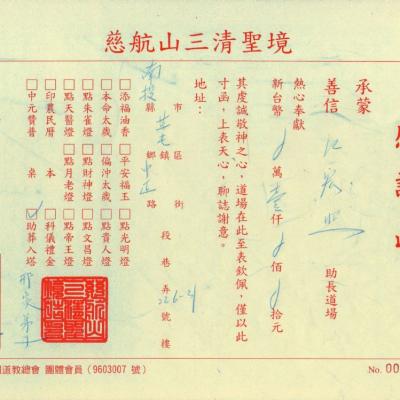 慈航山三清聖境
承蒙
善信 江 助長道場
熱心奉獻
新台幣 萬壹仟 佰 拾元
其虔誠敬神之心，道場在此至表欽佩，僅以此
寸函，上表天心，聊誌謝意。
地址：
南投縣市 草屯鄉鎮區 中正路街 段 巷 弄 226-21 號 樓
□添福油香 □平安福玉 □點光明燈
□本命太歲 □偏沖太歲 □點貴人燈
□點朱雀燈 □點財神燈 □點文昌燈
□點天醫燈 □點月老燈 □點帝王燈
□印農民曆 本 □科儀禮金
□中元贊普 桌 □助葬入塔
道教總會 團體會員（9603007 號）
No. 00